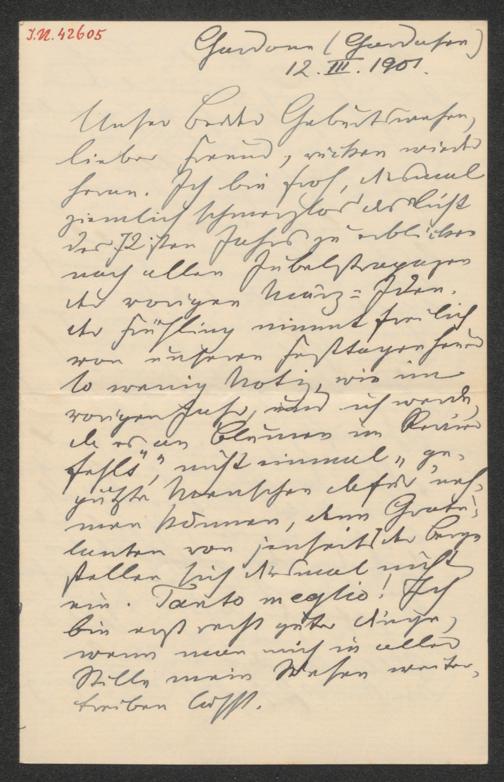 I.N. 42605
Gardone (Gardasee)
12. III. 1901.
Unser beider Geburtswesen,
lieber Freund, rücken wieder
heran. Ich bin froh, diesmal
ziemlich schmerzlos das Licht
des 72sten Jahrs zu erblicken
nach allen Jubelstrapazen
der vorigen März=Iden.
Der Frühling nimmt freilich
von unseren Festtagen heuer
so wenig Notiz, wie im
vorigen Jahr, und ich werde,
da es an "Blumen im Revier
fehlt", nicht einmal "ge-
putzte Menschen dafür" neh-
men können, denn Gratu-
lanten von jenseits der Berge
stellen sich diesmal nicht
ein. Tanto meglio! Ich
bin erst recht guter Dinge,
wenn man mich in aller
Stille mein Wesen weiter-
treiben läßt.